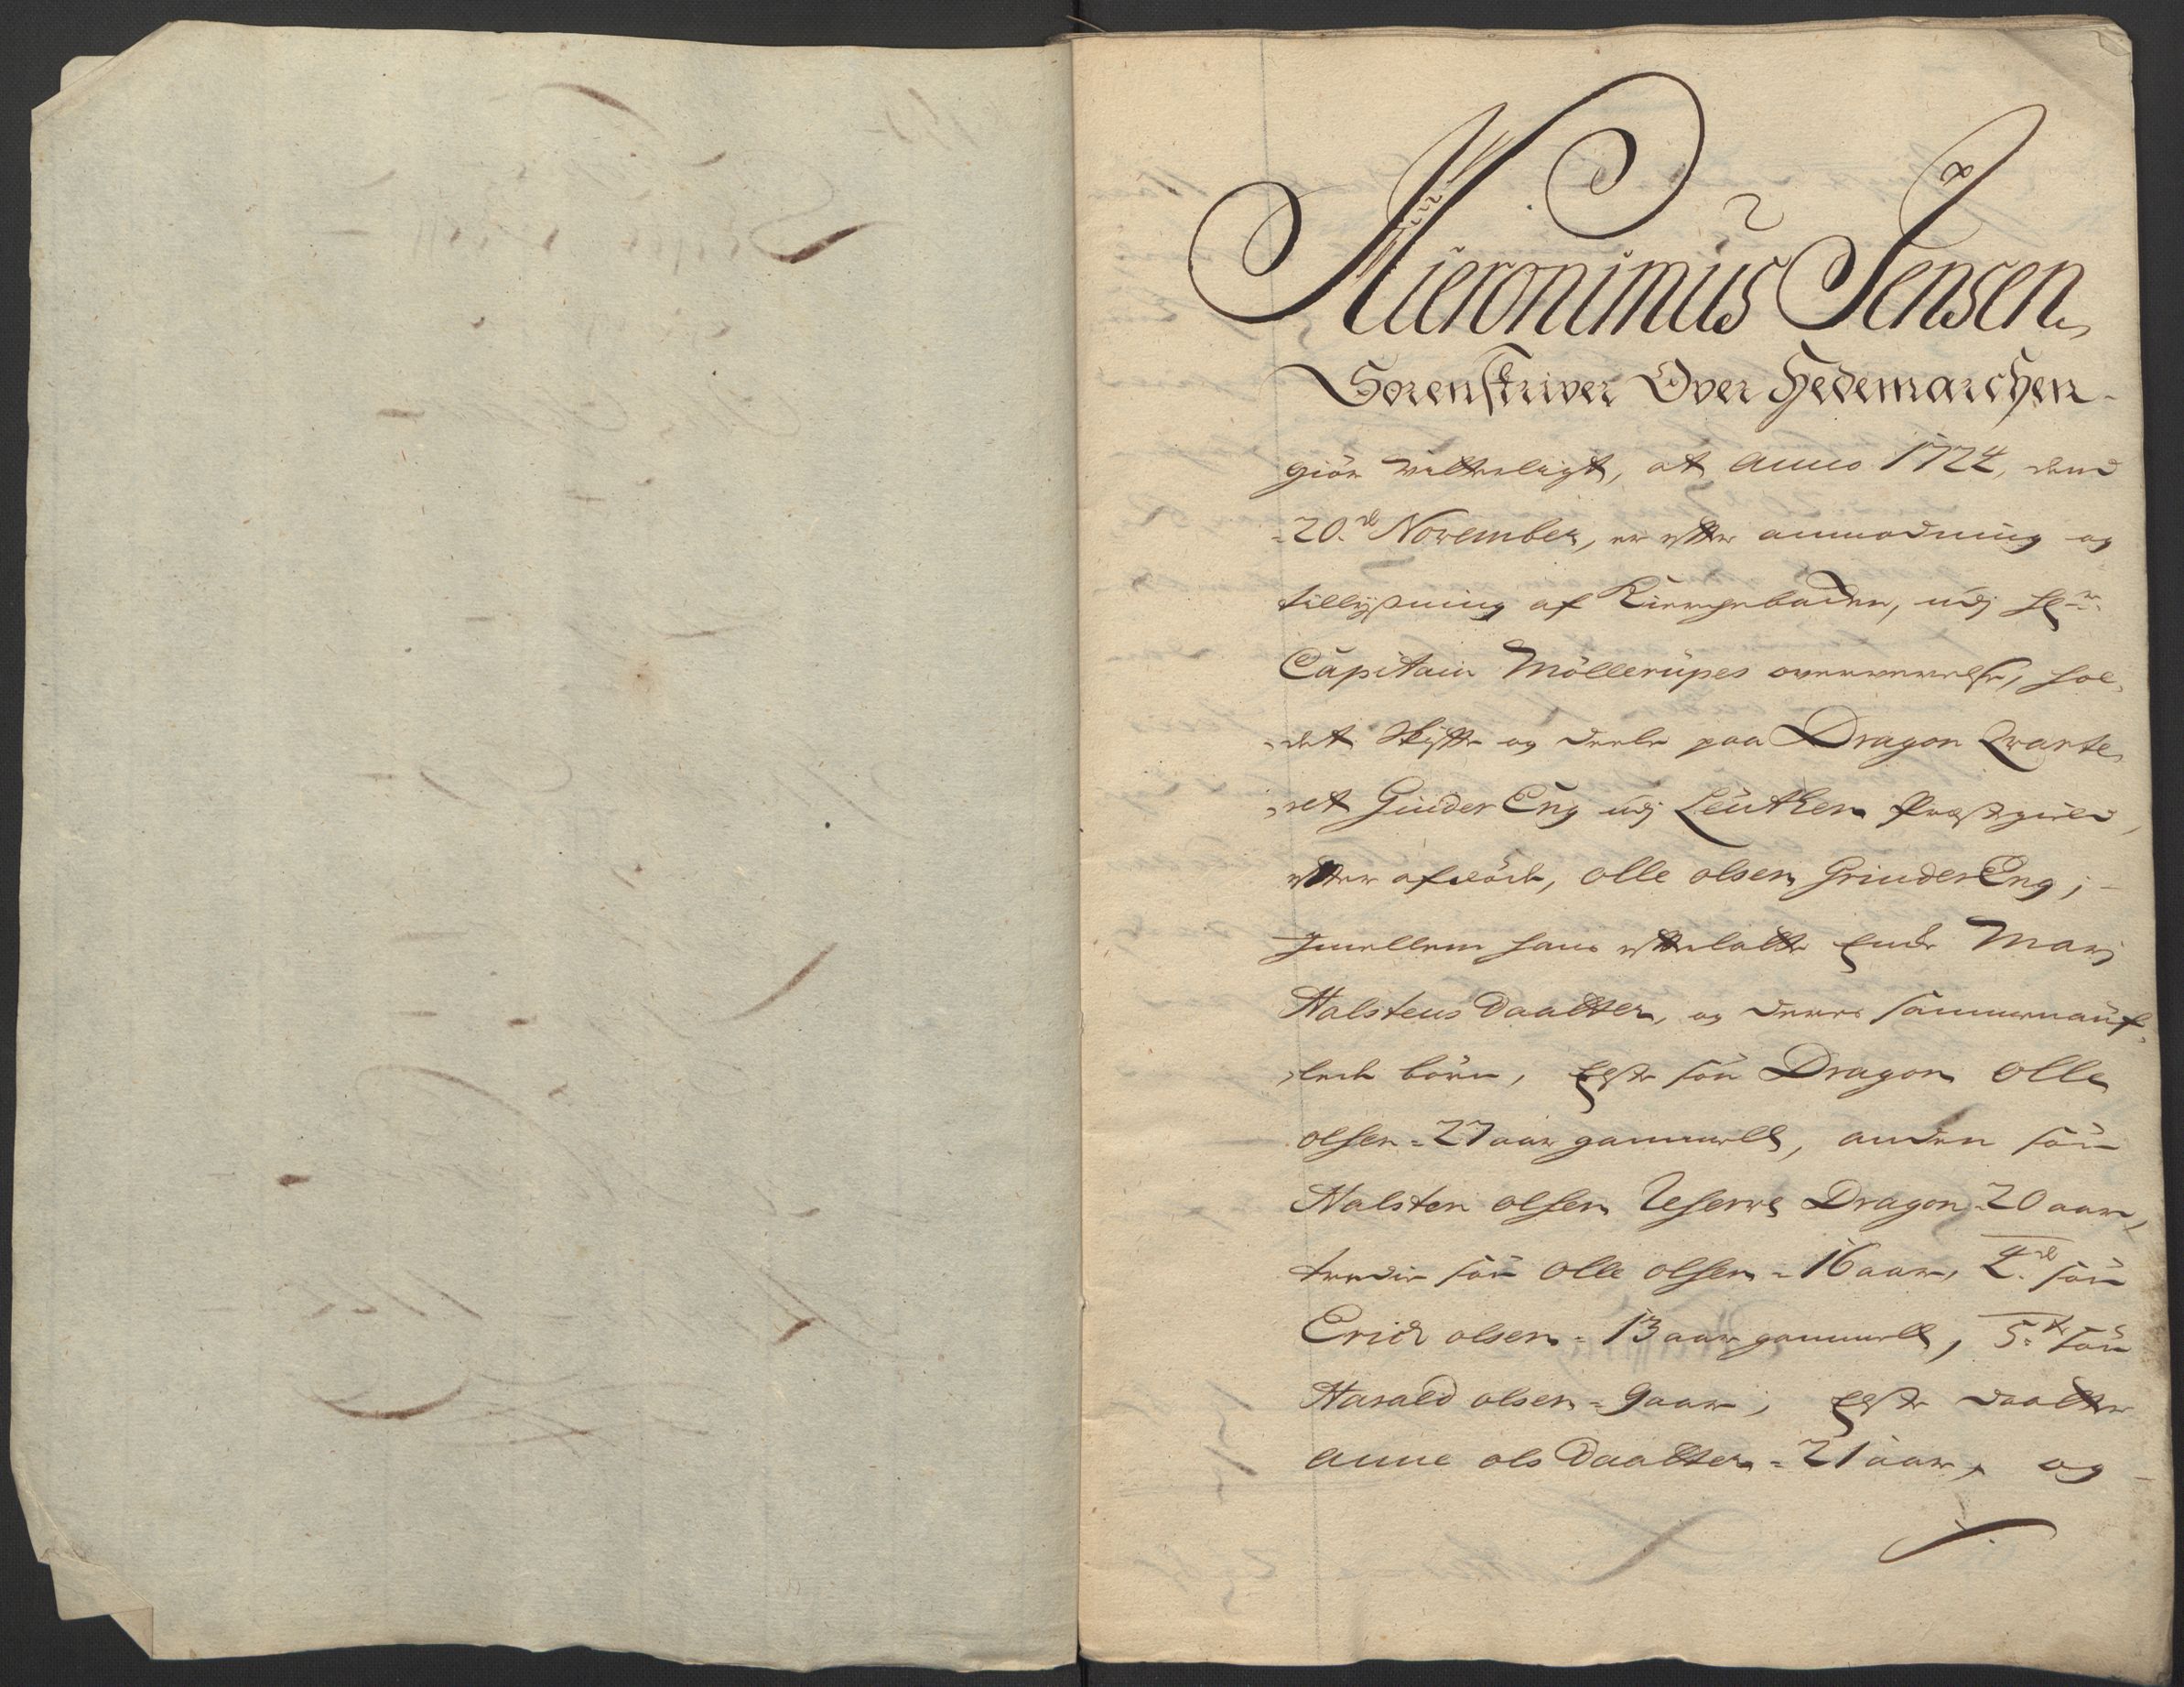 Hieronimus Jensen,
Sorenskriver Over Hedemarchen
giör vitterligt, at Anno 1724, dend
20.de November, er efter anmodning og
tillysning af Kirchebaken, udj Hr.
Capitain Möllerupes overværelse, hol-
det Skifte og deele paa Dragon Qvarte-
ret Grinder Eng udj Leuthen Præstegield,
efter afdöde, Olle olsen GrinderEng;
Imellem hans efterlatte Encke Marj
Halstens Daatter, og deres sammenauf-
lede börn, Elste sön Dragon Olle
olsen 27 aar gammell, anden sön
Halsten olsen Reserve Dragon 20 aar,
tredie sön Olle olsen 16 aar, 4.de sön
Erich olsen 13 aar gammell, 5.te sön
Harald olsen 9 aar, Elste daatter
Anne ols Daatter 21 aar, og